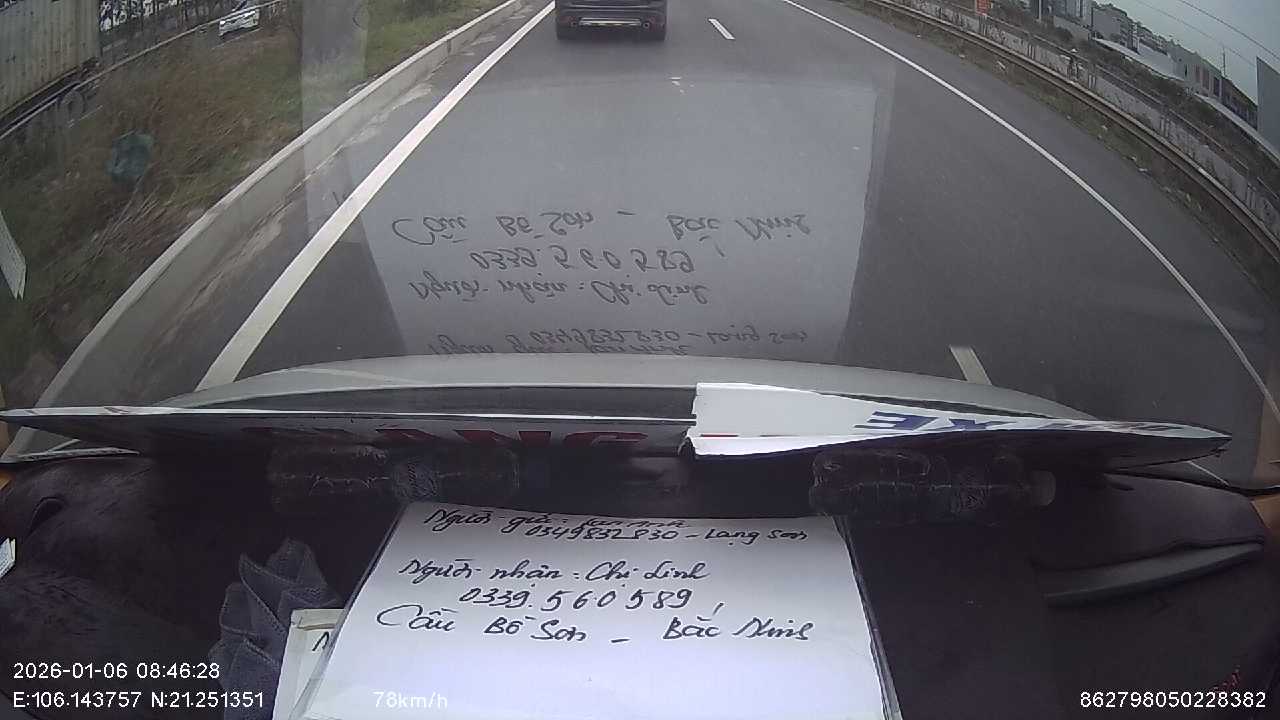 Người gửi:
0349832830 - Lạng Sơn
Người nhận: Chị Linh
0339.560589
Cầu Bồ Sơn - Bắc Ninh
2026-01-06 08:46:28
E:106.143757 N:21.251351
78km/h
862798050228382